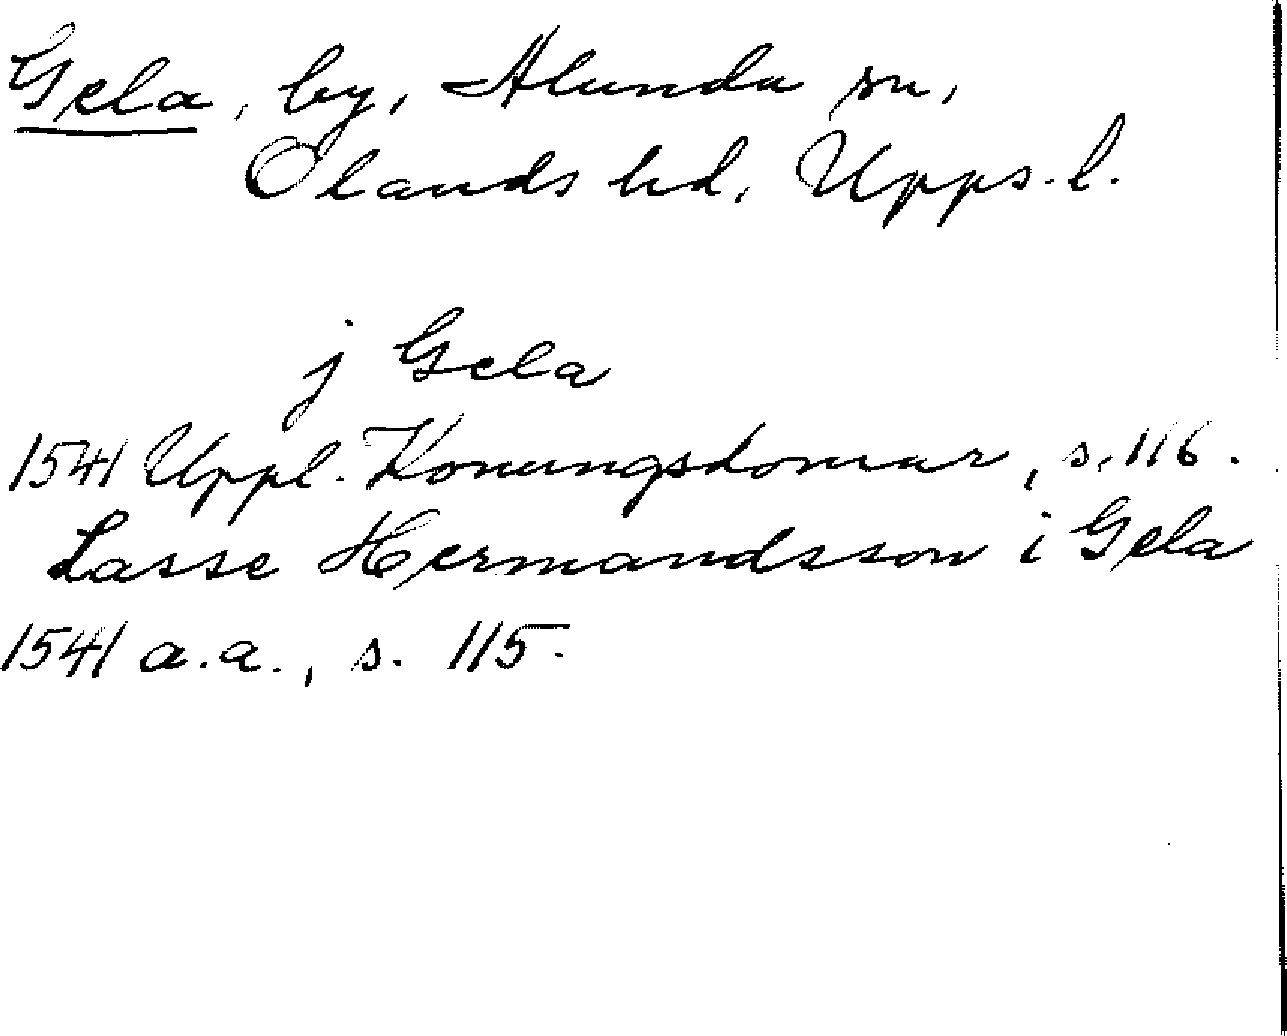 Gela, by, Alunda sn,
Olands hd, Upps. l.
j Gela
1541 Uppl. Konungsdomar, s. 116.
Lasse Hermandsson i Gela
1541 a.a., s. 115.